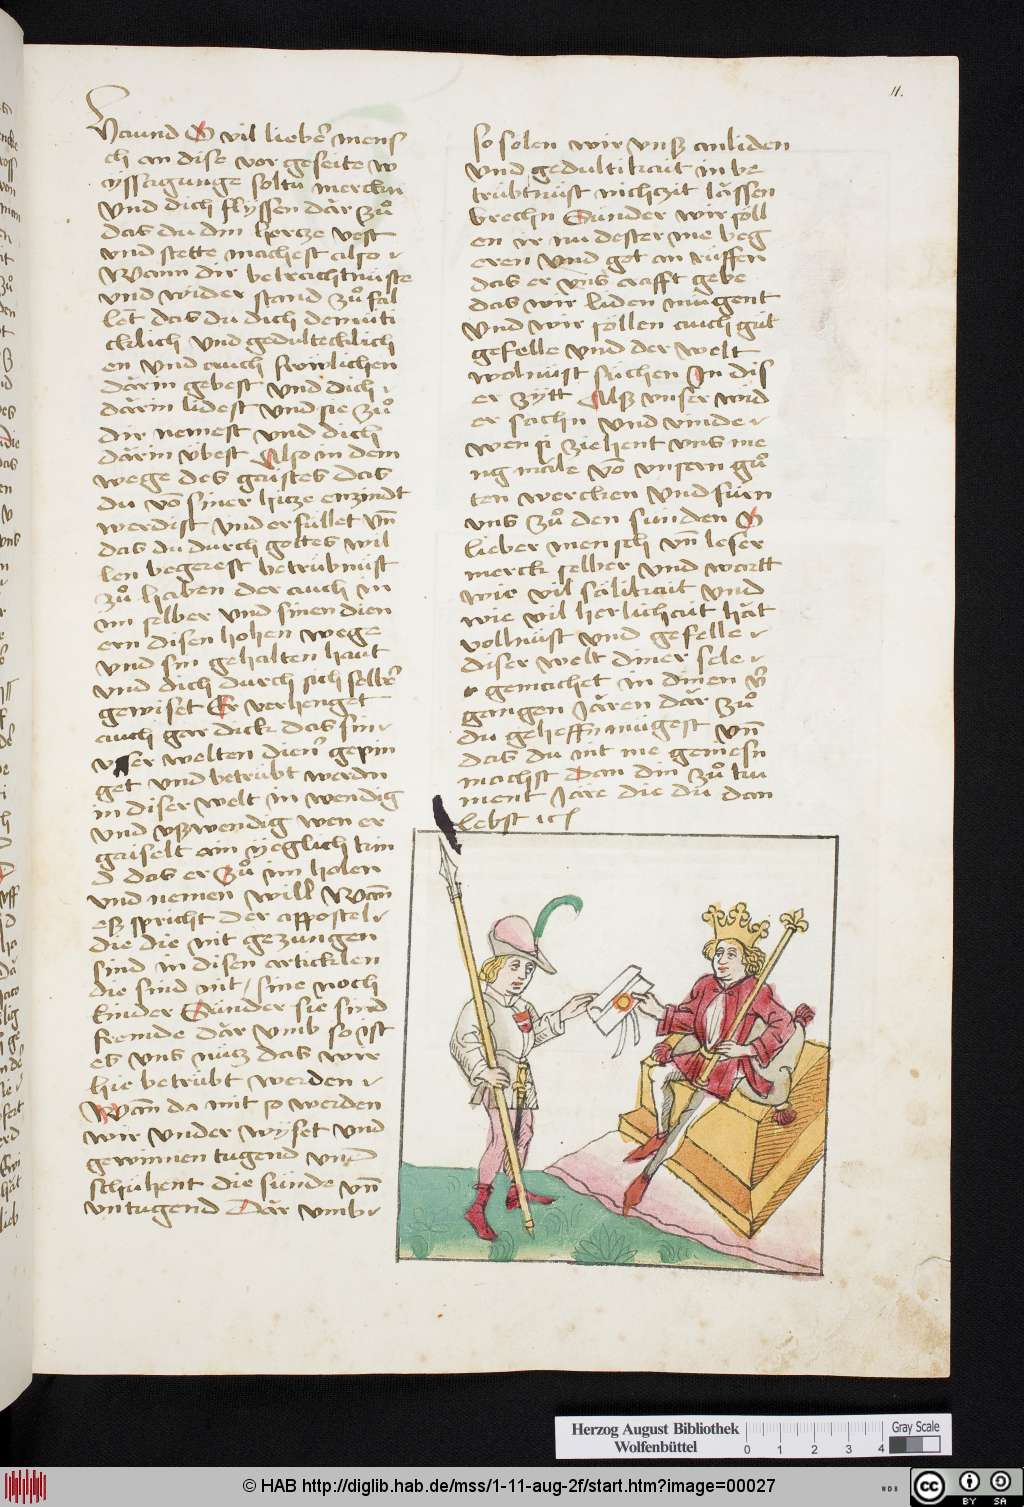 11.
vnd O vil lieber mens
ch an dise vor geseite w
yssagunge soltu mercken
Vnd dich flyssen dar zuͦ
das du din hertze vest
vnd stette machest also
Wann dir betrachtnüste
vnd wider stand zuͦ fal
let das du dich demüti
cklich vnd gedultecklich
en vnd auch frowlichen
darin gebest vnd dich
darin lidest vnd sie zuͦ
dir nemest vnd dich
darin übest Also in dem
wege des gaistes das
du vō siner hitze enzündt
werdist vnd erfüllet vn̄
das du durch gottes wil
len begerest betrübnüst
zuͦ haben der auch in
im selber vnd sinen dien
ern disen hohen wege
vnd sin gehalten haut
vnd dich durch sich selber
gewiset Er verhenget
auch gar dick das sin
vser welten diener gepin
get vnd betrübt werdn
in diser welt in wendig
vnd vßwendig wen er
gaiselt ain yeglich kin
d das er zuͦ im holen
vnd nemen will Wann
es spricht der appostel
die die nit gezungen
sind in disen articklen
die sind nit sine noch
kinder Sunder sie sind
fremde Dar vmb so ist
es vns nütz das wir
hie betrübt werden
Wan da mit so werden
wir vnder wyset vnd
gewinnen tugend vnd
schühent die sünde vn̄
vntugend Dar vmb
so solen wir vnß anliden
vnd gedultikait in be
trübtnüst nichzit lässen
brechn Sunder wir söll
en ir nu dester me beg
eren vnd got an rüffen
das er vns crafft gebe
das wir liden mügent
vnd wir söllen auch güt
gefelle vnd der welt
wolnüst fliehen In dis
er zytt Als vnser wid
er sachn vnd vinde
wen si ziehent vns me
ng male vō vnsern guͦ
ten wercken vnd fürn
vns zuͦ den sünden O
lieber mensch vn̄ leser
merck selber vnd wartt
wie vil sälikait vnd
wie vil herlichait hät
vollnüst vnd gefelle
diser welt diner sele
gemachet in dinen v̄
gangen Jären dar zuͦ
du geheffn mügest vn̄
das du nit me geniesn
machst Dan din zuͦ kū
ment Järe die du dan
lebst ⁊c
Herzog August Bibliothek
Wolfenbüttel
0 1 2 3 4
Gray Scale
© HAB http://diglib.hab.de/mss/1-11-aug-2f/start.htm?image=00027
WDB
cc BY SA